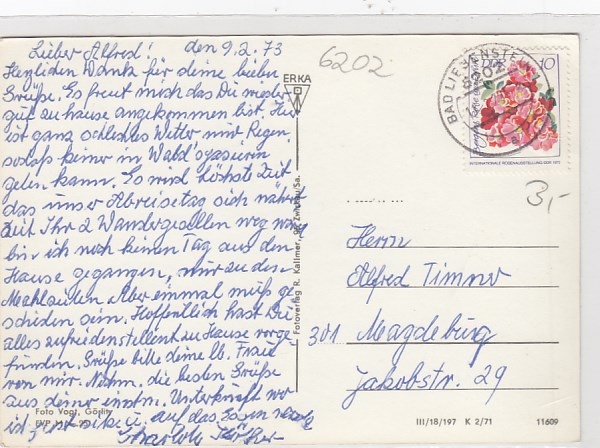 Lieber Alfred! den 9.2.73
Herzlichen Dank für deine lieben
Grüße. Es freut mich das Du wieder
gut zu hause angekommen bist. Hier
ist ganz schlechtes Wetter nur Regen
sodaß keiner im Wald spazieren
gehen kann. Es wird höchste Zeit
das unser Abreisetag sich nähert
seit Ihr 2 Wandergesellen weg
bin ich noch keinen Tag aus dem
Hause gegangen, nur zu den
Mahlzeiten. Aber einmal muß ge-
schieden sein. Hoffentlich hast Du
alles zufriedenstellent zu Hause vorge-
funden. Grüße bitte deine lb. Frau
von mir. Nehm. die besten Grüße
aus deiner Unterkunft wo
ist, auf das
Charlotte
Foto Vogt, Görlitz
6202
ERKA
Fotoverlag R. Kallmer, Zwickau/Sa.
BAD LIEBENSTEIN
6202
DDR 10
INTERNATIONALE ROSENAUSSTELLUNG DDR 1972
3,-
Herrn
Alfred Timner
301 Magdeburg
Jakobstr. 29
III/18/197 K 2/71 11609